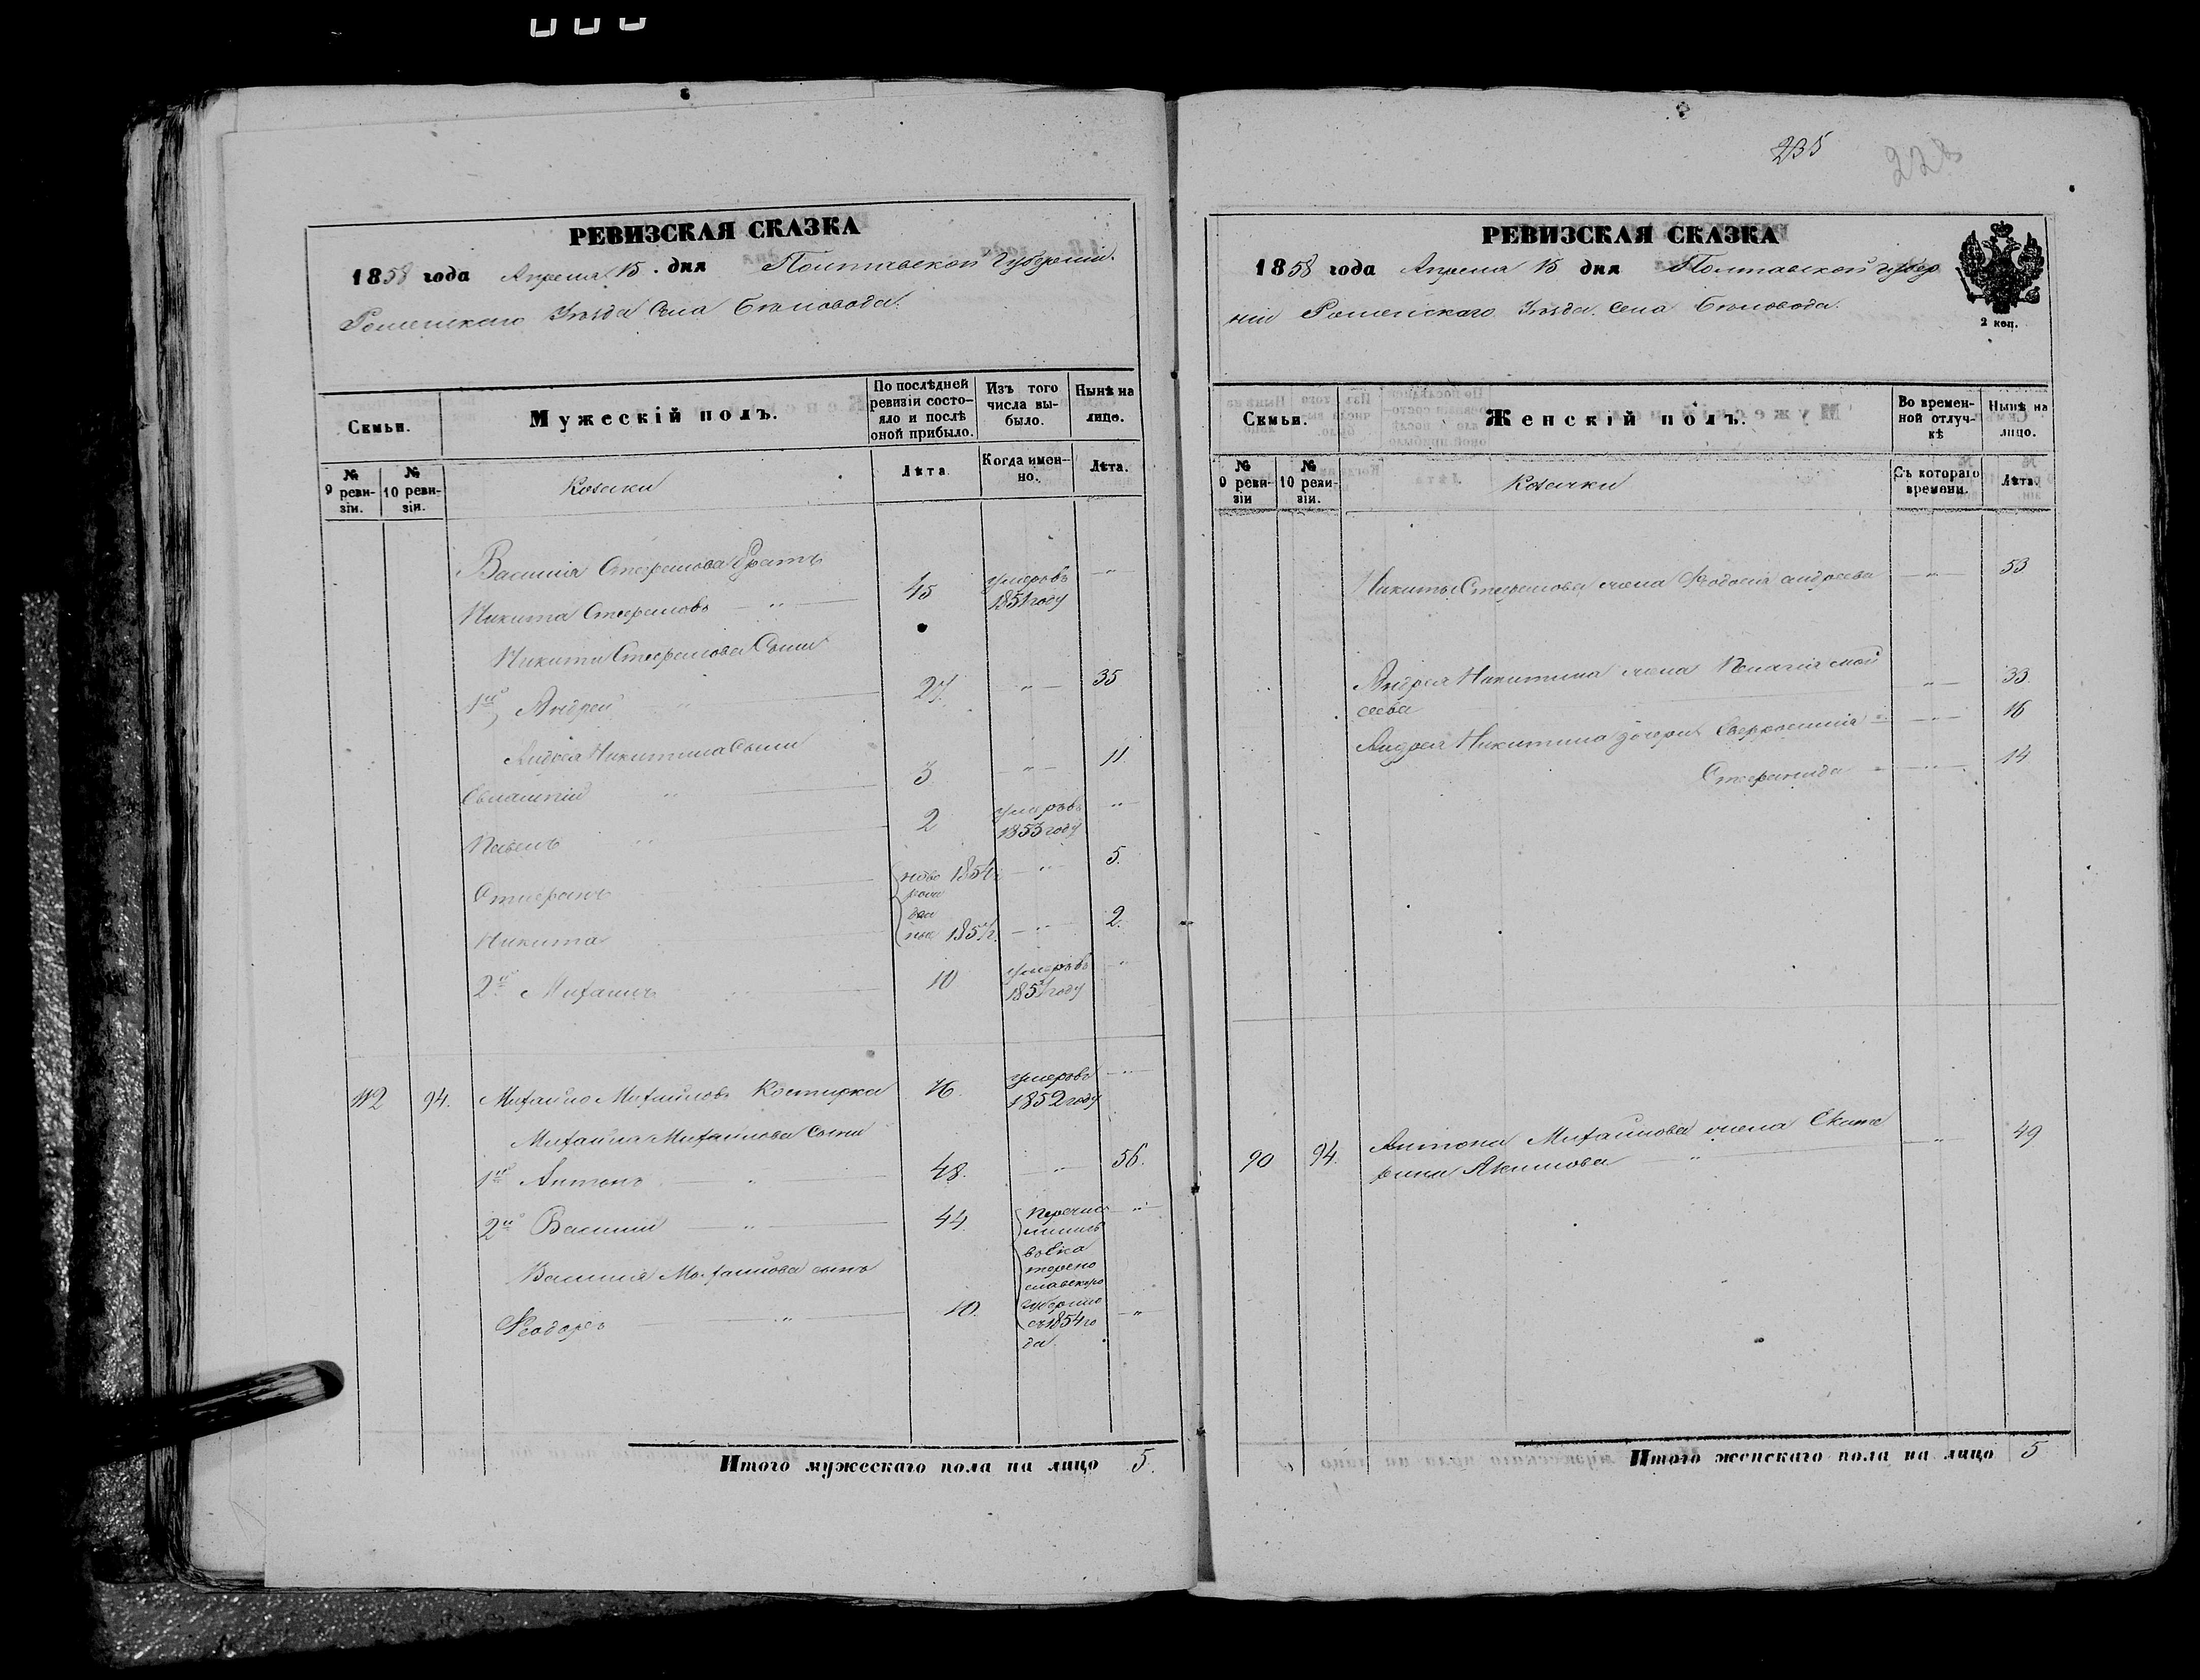 РЕВИЗСКАЯ СКАЗКА
1858 года Апреля 15 дня Полтавской Губернии.
Роменскаго Уѣзда Села Бѣловода.
Семьи.
Мужескій полъ.
По послѣдней ревизіи состояло и послѣ оной прибыло.
Изъ того числа выбыло.
Нынѣ на лицо.
№ 9 ревизіи.
№ 10 ревизіи.
Козаки
Лѣта.
Когда именно.
Лѣта.
Василія Стефанова братъ
Никита Стефановъ " 45 умеръ въ 1851 году "
Никиты Стефанова Сыни
1й Андрей " 27. " 35
Андрея Никитина Сыни
" 3. " 11.
Павелъ " 2 умеръ въ 1853 году "
Стефанъ ново 1854 г. " 5.
рож
ден
Никита ные 185 г. " 2.
2й Михаилъ " 10 умеръ въ 185 году "
112 94. Михайло Михайловъ Костирка 76. умеръ въ 1852 году "
Михаила Михайлова Сыни
1й Антонъ " 48. " 56.
2й Василій " 44. Перечис "
лились
въ Ека
Василія Михайлова сынъ терино
славскую
Феодоръ " 10. губернію "
съ 1854 го
да.
Итого мужескаго пола на лицо 5.
235
228
РЕВИЗСКАЯ СКАЗКА
1858 года Апреля 15 дня Полтавской губер
ніи Роменскаго Уѣзда. Села Бѣловода.
2 коп.
Семьи.
Женскій полъ.
Во временной отлучкѣ
Нынѣ на лицо.
№ 9 ревизіи
№ 10 ревизіи.
Козачки
Съ котораго времени.
Лѣта.
Никиты Стефанова жена Феодосія андреева " 53
Андрея Никитина жена Пелагія Мой
сеева " 33.
Андрея Никитина дочери " 16
Стефанида " 14
90 94. Антона Михайлова жена Екате
рина Акимова " " 49
Итого женскаго пола на лицо 5